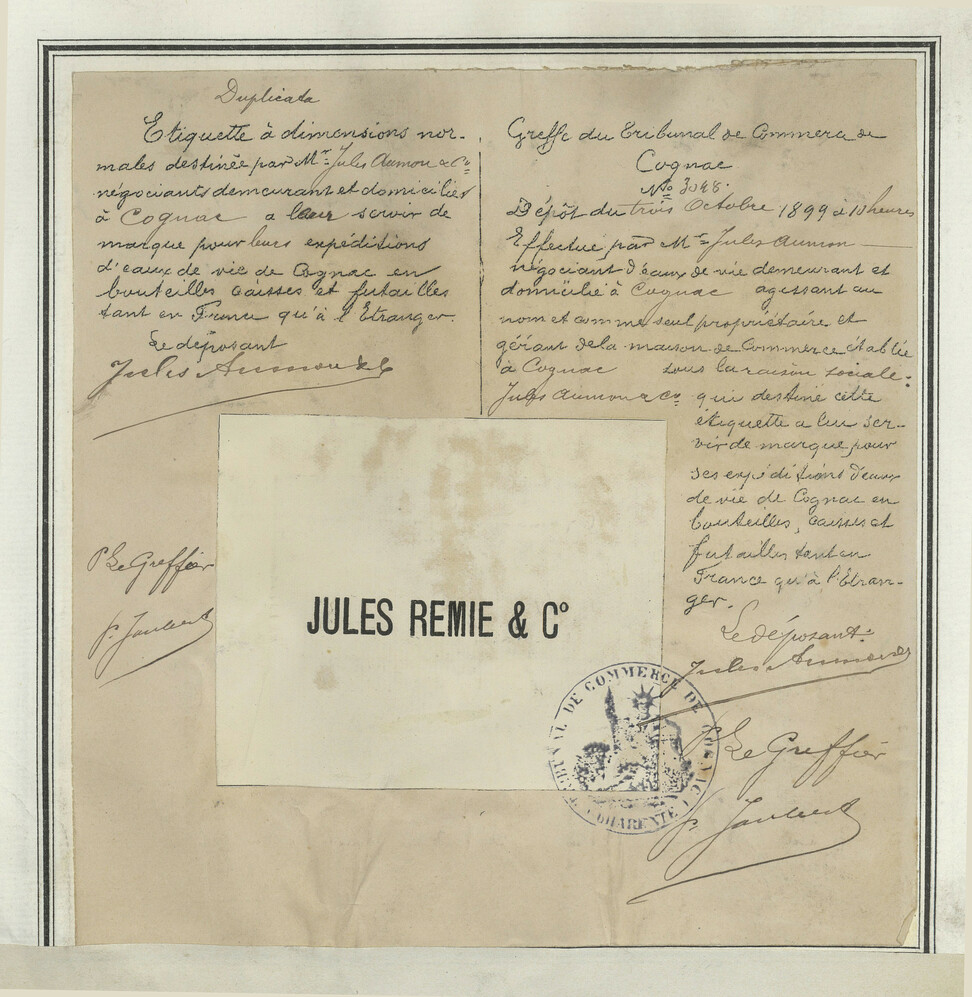 Duplicata
Etiquette à dimensions nor-
males destinée par Mr. Jules Aumon & Co
négociants demeurant et domiciliés
à Cognac a leur servir de
marque pour leurs expéditions
d'eaux de vie de Cognac en
bouteilles caisses et futailles
tant en France qu'à l'Etranger.
Le déposant
Jules Aumon & Co
P Le Greffier
P. Joubert
Greffe du Tribunal de Commerce de
Cognac
No 3048.
Dépôt du trois Octobre 1899 à 10 heures
Effectué par Mr Jules Aumon
négociant d'eaux de vie demeurant et
domicilié à Cognac agissant au
nom et comme seul propriétaire et
gérant de la maison de Commerce établie
à Cognac sous la raison sociale:
Jules Aumon & Co qui destine cette
étiquette a lui ser-
vir de marque pour
ses expéditions d'eaux
de vie de Cognac en
bouteilles, caisses et
futailles tant en
France qu'à l'Etran-
ger.
Le déposant:
Jules Aumon & Co
P Le Greffier
P. Joubert
JULES REMIE & Co
TRIBUNAL DE COMMERCE DE COGNAC
CHARENTE